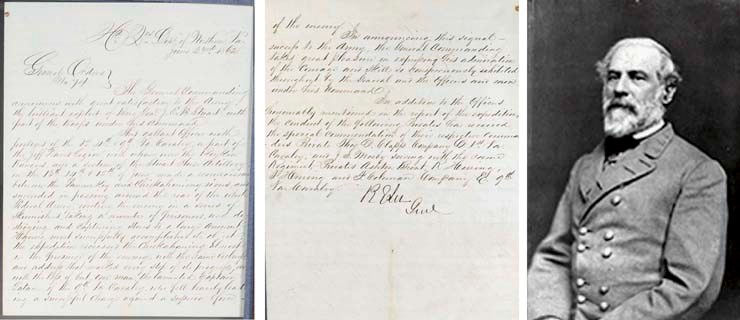 Hd Qrs Dept of Northern Va
June 23rd 1862
General Orders
No 74
The General Commanding
announces with great satisfaction to the Army
the brilliant exploit of Brig Genl J E B Stuart with
part of the troops under his command.
This gallant Officer with
portions of the 1st 4th & 9th Va Cavalry a part of
the Jeff Davis Legion with whom were the
Rangers and a section of the Stuart Horse Artillery
on the 13th 14th & 15th of June made a reconnoissance
between the Pamunkey and Chickahominy rivers and
succeeded in passing around the rear of the whole
Federal Army, routing the enemy in a series of
skirmishes taking a number of prisoners and de
stroying and capturing stores to a large amount
Having most successfully accomplished its object
the expedition recrossed the Chickahominy almost
in the presence of the enemy with the same coolness
and address that marked every step of its progress, and
with the loss of but one man, the lamented Captain
Latane of the 9th Va Cavalry who fell bravely lead
ing a successful charge against a superior force
of the enemy
In announcing this signal
success to the Army, the General Commanding
takes great pleasure in expressing his admiration
of the Courage and Skill so conspicuously exhibited
throughout by the General and the Officers and men
under his command.
In addition to the Officers
honorably mentioned in the report of the expedition
the conduct of the following Privates has received
the special commendation of their respective Comman
ders Private Thos D Clapp Company D 1st Va
Cavalry, and J S Mosby serving with the same
Regiment, Privates Ashton, Brent, R Herring,
F Herring and F Coleman Company E 9th
Va Cavalry.
R E Lee
Genl